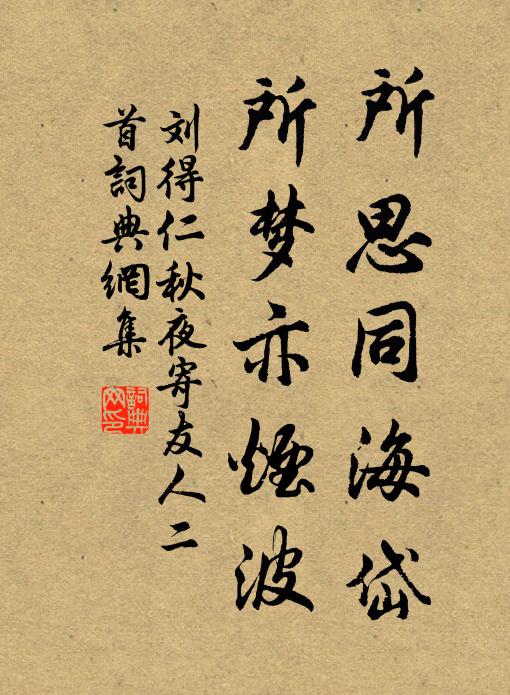 所思同海岱
所梦亦烟波
刘得仁秋夜寄友人二
首詞典網集
詞典
网印